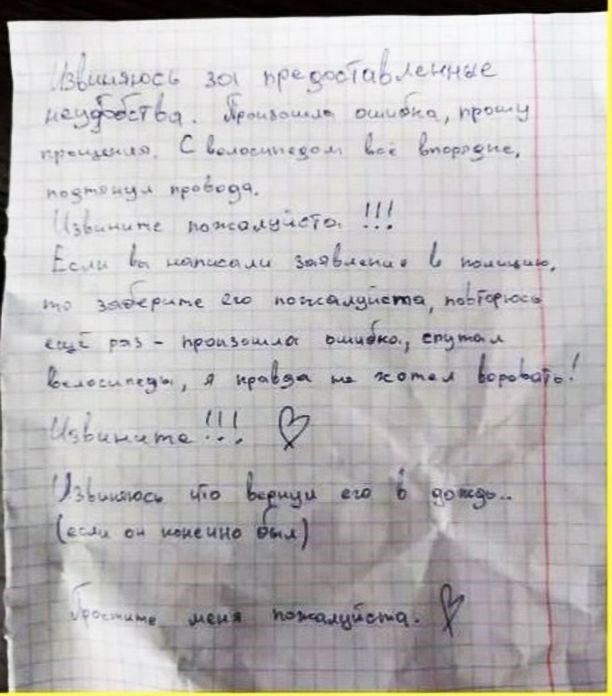 Извиняюсь за предоставленные
неудобства. Произошла ошибка, прошу
прощения. С велосипедом всё впорядке,
подтянул провода.
Извините пожалуйста !!!
Если вы написали заявление в полицию,
то заберите его пожалуйста, повторюсь
ещё раз - произошла ошибка, спутал
велосипеды, я правда не хотел воровать!
Извините !!! ♡
Извиняюсь что вернул его в дождь..
(если он конечно был)
Простите меня пожалуйста. ♡